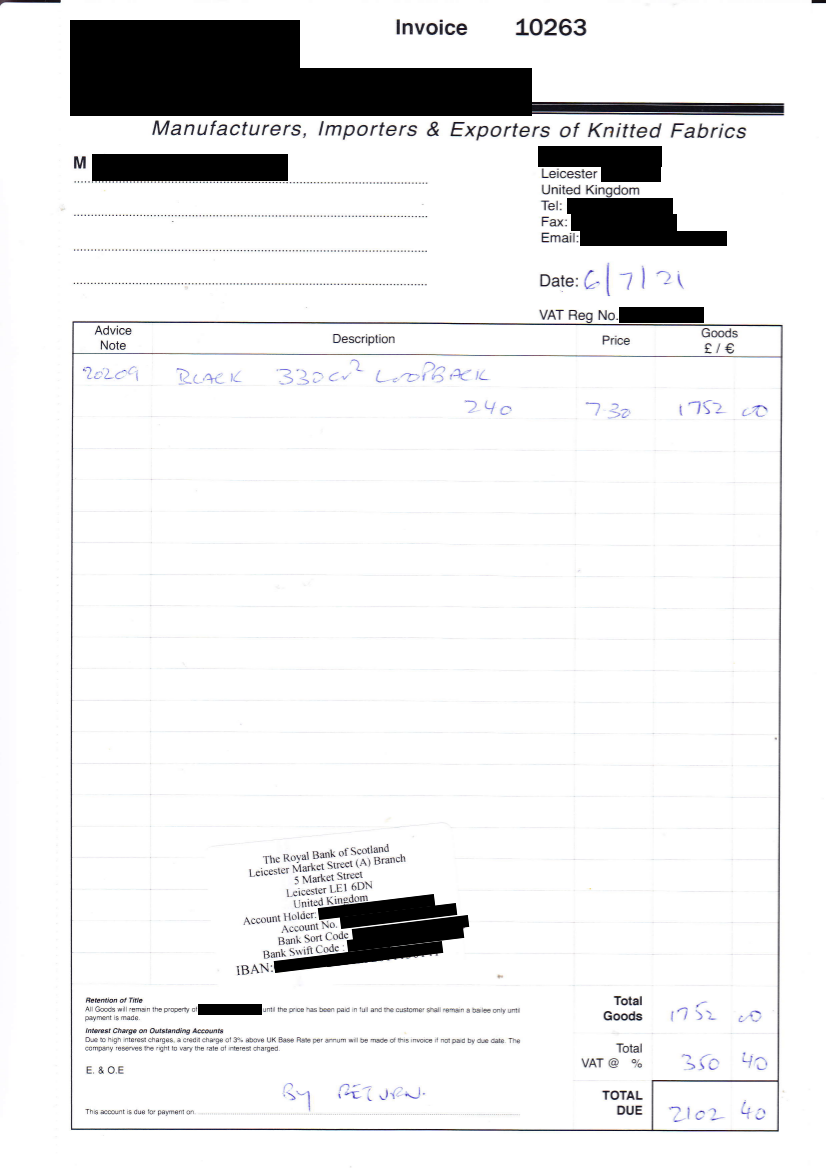 Invoice 10263
Manufacturers, Importers & Exporters of Knitted Fabrics
M
Leicester
United Kingdom
Tel:
Fax:
Email:
Date: 6/7/21
VAT Reg No.
Advice Note Description Price Goods £ / €
20209 BLACK 330 LOOPBACK
240 7.30 1752 00
The Royal Bank of Scotland
Leicester Market Street (A) Branch
5 Market Street
Leicester LE1 6DN
United Kingdom
Account Holder:
Account No.
Bank Sort Code
Bank Swift Code :
IBAN:
Retention of Title
All Goods will remain the property of until the price has been paid in full and the customer shall remain a bailee only until
payment is made.
Interest Charge on Outstanding Accounts
Due to high interest charges, a credit charge of 3% above UK Base Rate per annum will be made of this invoice if not paid by due date. The
company reserves the right to vary the rate of interest charged.
E. & O.E
Total Goods 1752 00
Total VAT @ % 350 40
This account is due for payment on BY RETURN.
TOTAL DUE 2102 40